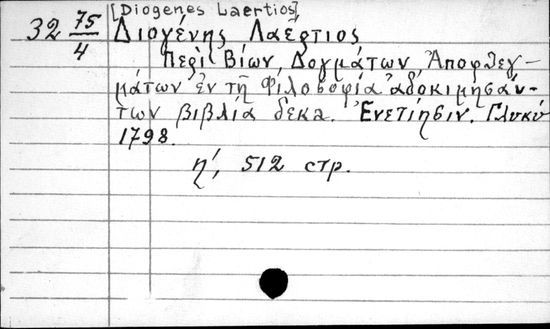 [Diogenes Laertios]
32 75/4 Διογένης Λαέρτιος
Περὶ Βίων, Δογμάτων, Ἀποφθεγ-
μάτων ἐν τῇ Φιλοσοφίᾳ ἀδοκιμησάν-
των βιβλία δεκα. Ἐνετίησιν. Γλυκύ
1798.
η', 512 стр.